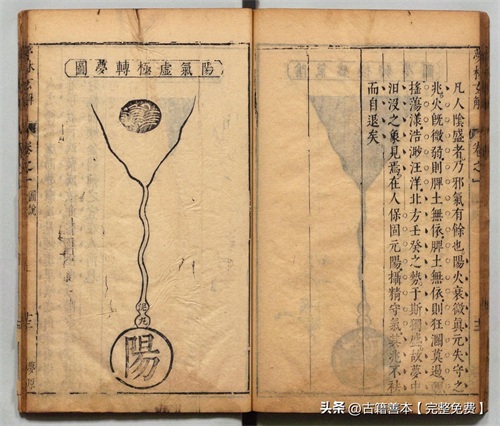 夢林玄解
卷之一
凡人陰盛者乃邪氣有餘也陽火衰微眞元失守之
兆火旣微弱則脾土無依脾土無依則狂瀾莫遏
搖蕩漾浩渺汪洋北方壬癸之勢于斯獨盛故夢中
汨沒之象見焉在人保固元陽攝精守氣兆不祛
而自退矣
陽氣虛極轉夢圖
九
陽
卷之一
圖說
頭条 @古籍善本【完整免费】